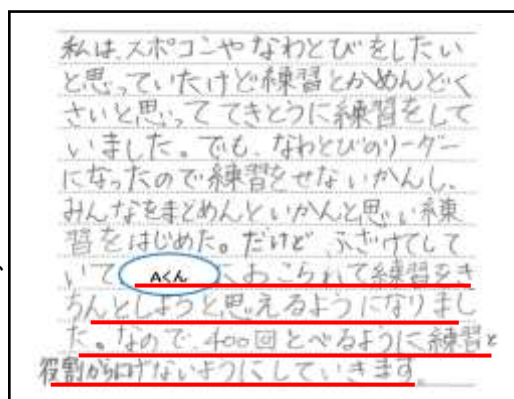 私は、スポコンやなわとびをしたい
と思っていたけど練習とかめんどく
さいと思っててきとうに練習をして
いました。でも、なわとびのリーダー
になったので練習をせないかんし、
みんなをまとめんといかんと思い練
習をはじめた。だけど ふざけてして
いて Aくん におこられて練習をき
ちんとしようと思えるようになりまし
た。なので、400回とべるように練習と
役割からにげないようにしていきます。